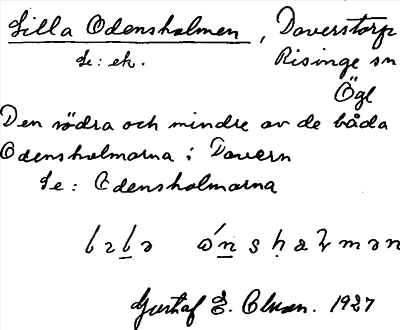 Lilla Odensholmen, Daverstorp
Se: ek. Risinge sn
Ögl
Den södra och mindre av de båda
Odensholmarna i Dovern
Se: Odensholmarna
Gustaf E. 1927